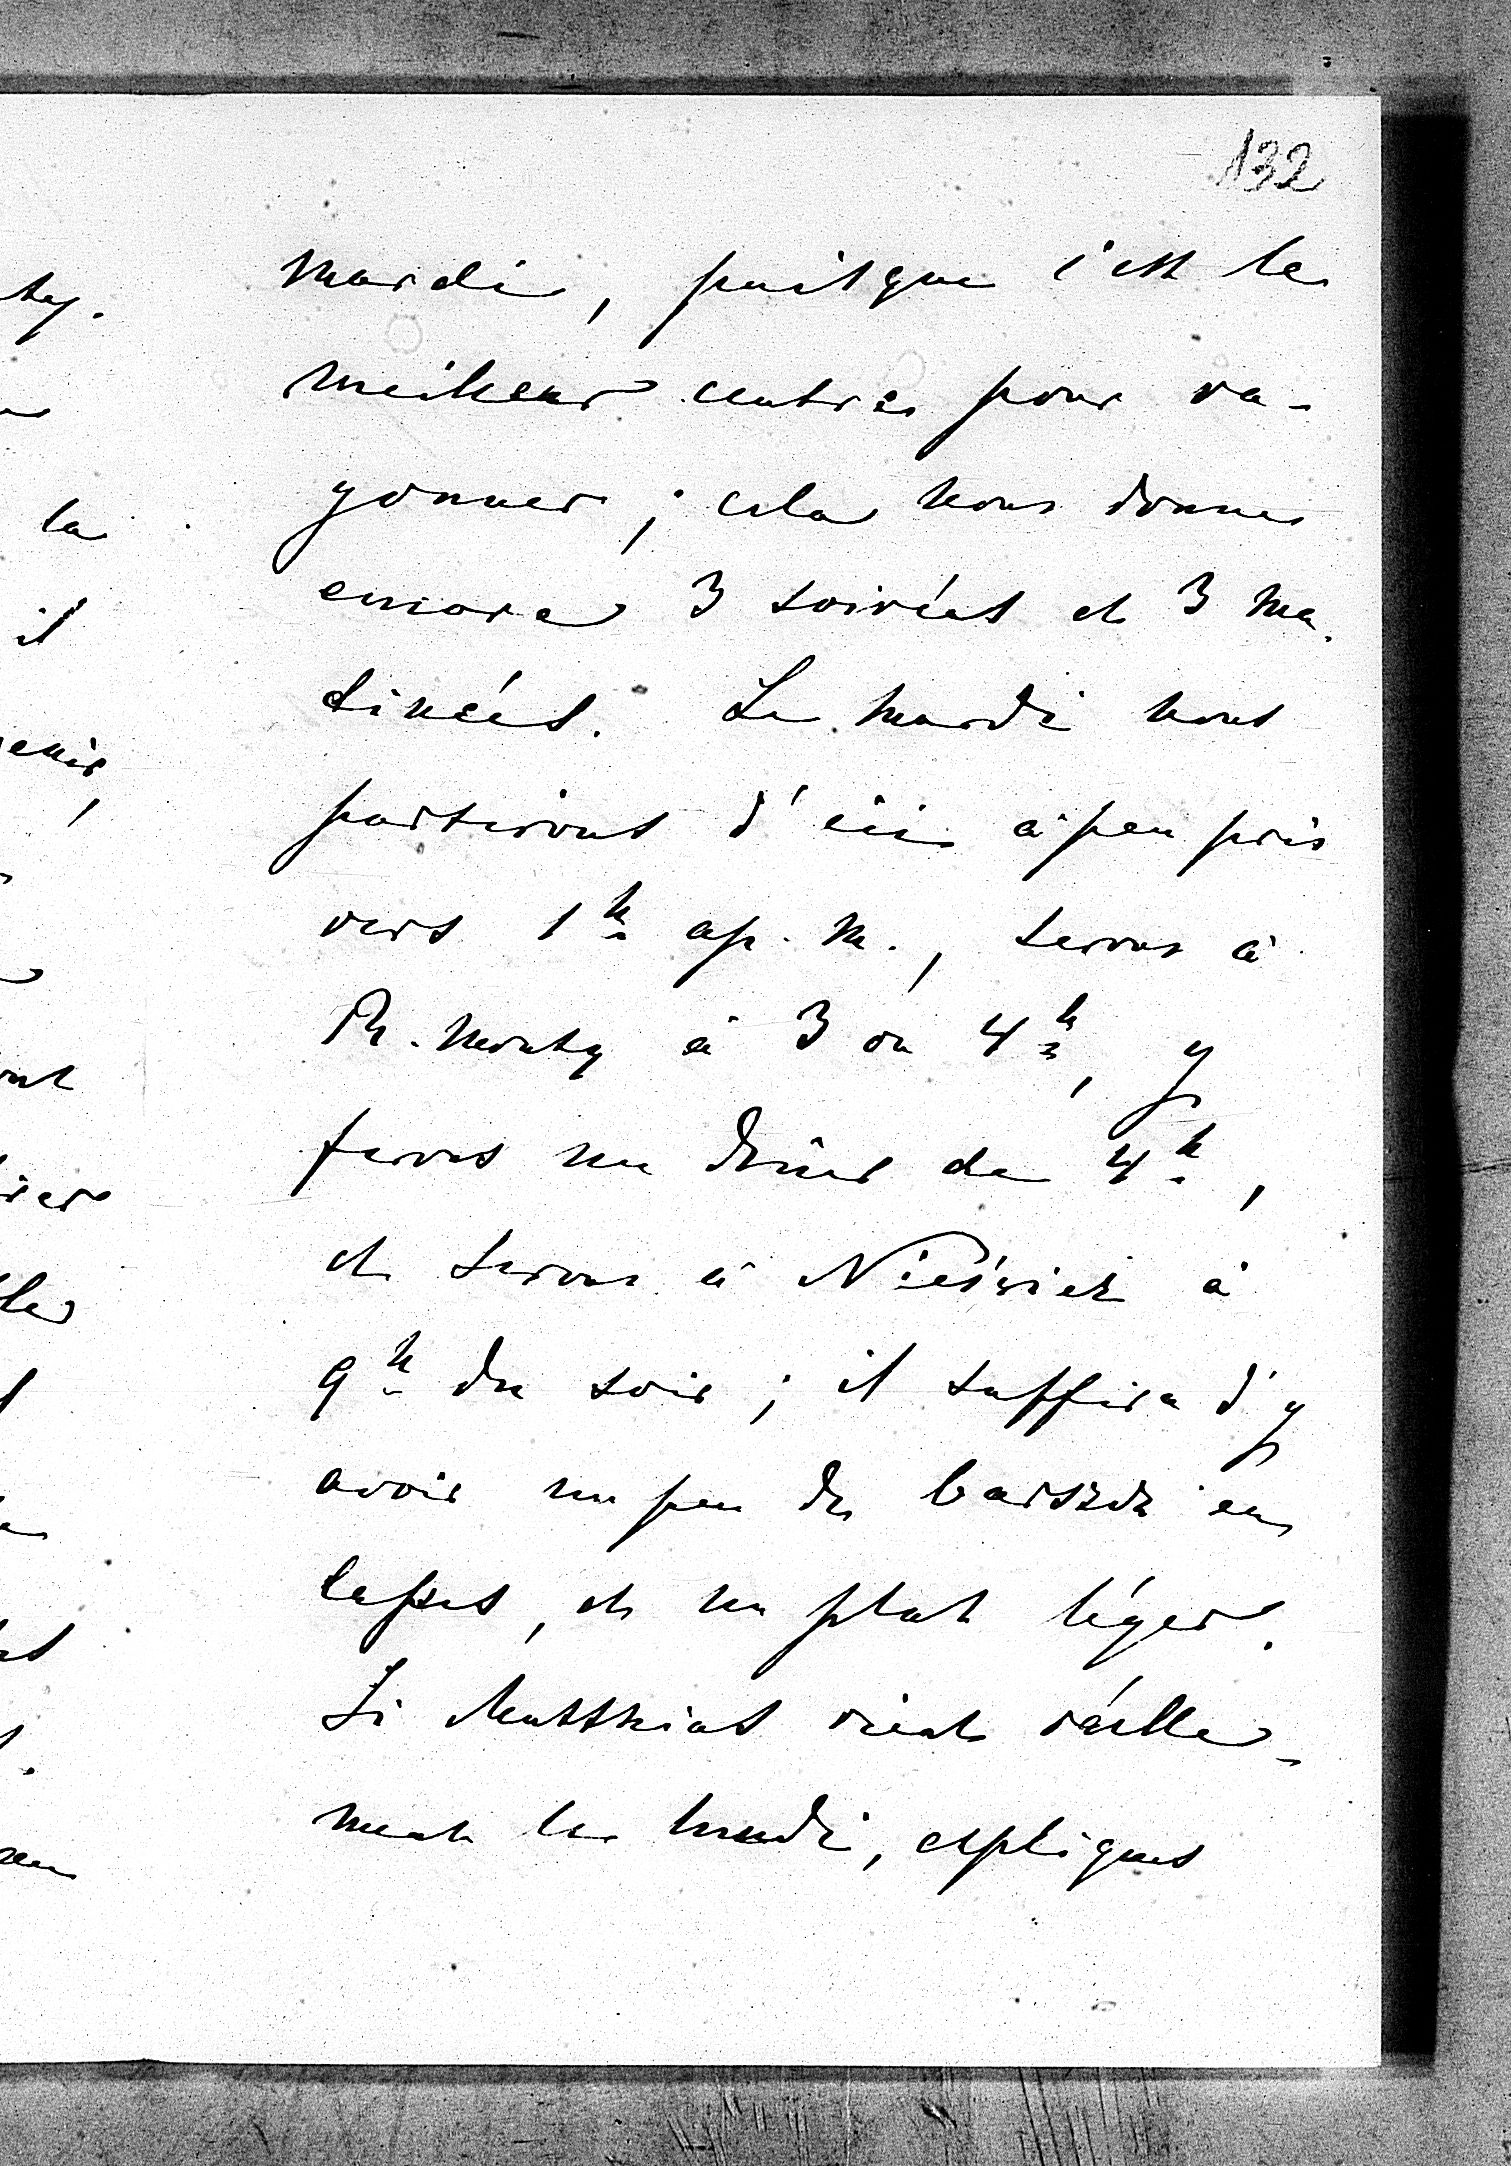 132
mardi, puisque c'est le
meilleur centre pour ra-
yonner ; cela nous donne
encore 3 soirées et 3 ma-
tinées. Le mardi nous
partirons d'ici à peu près
vers 1h ap. m., serons à
Ph. Monty à 3 ou 4h, y
ferons un dîner de 4h,
et serons à Nieśwież à
9h du soir ; il suffira d'y
avoir un peu de barszcz en
tasses, et un plat léger.
Si Matthias vient réelle-
ment le lundi, expliques